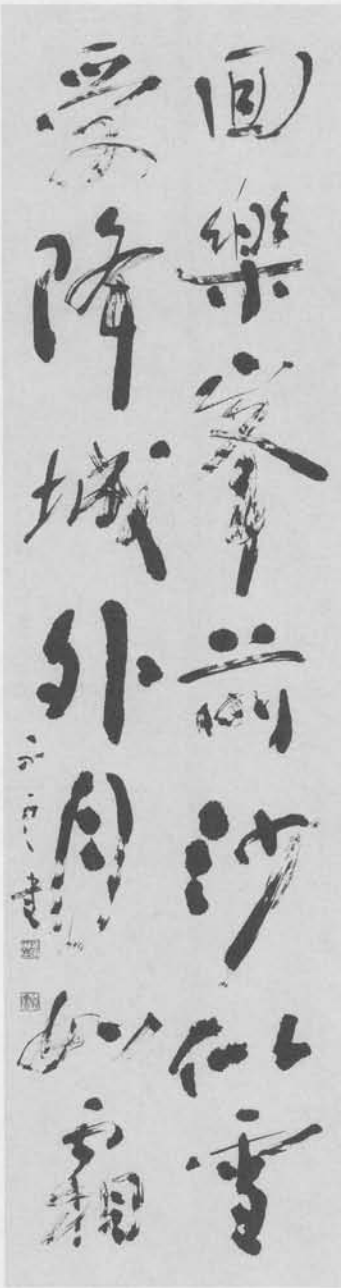 回樂峯前沙似雪
受降城外月如霜